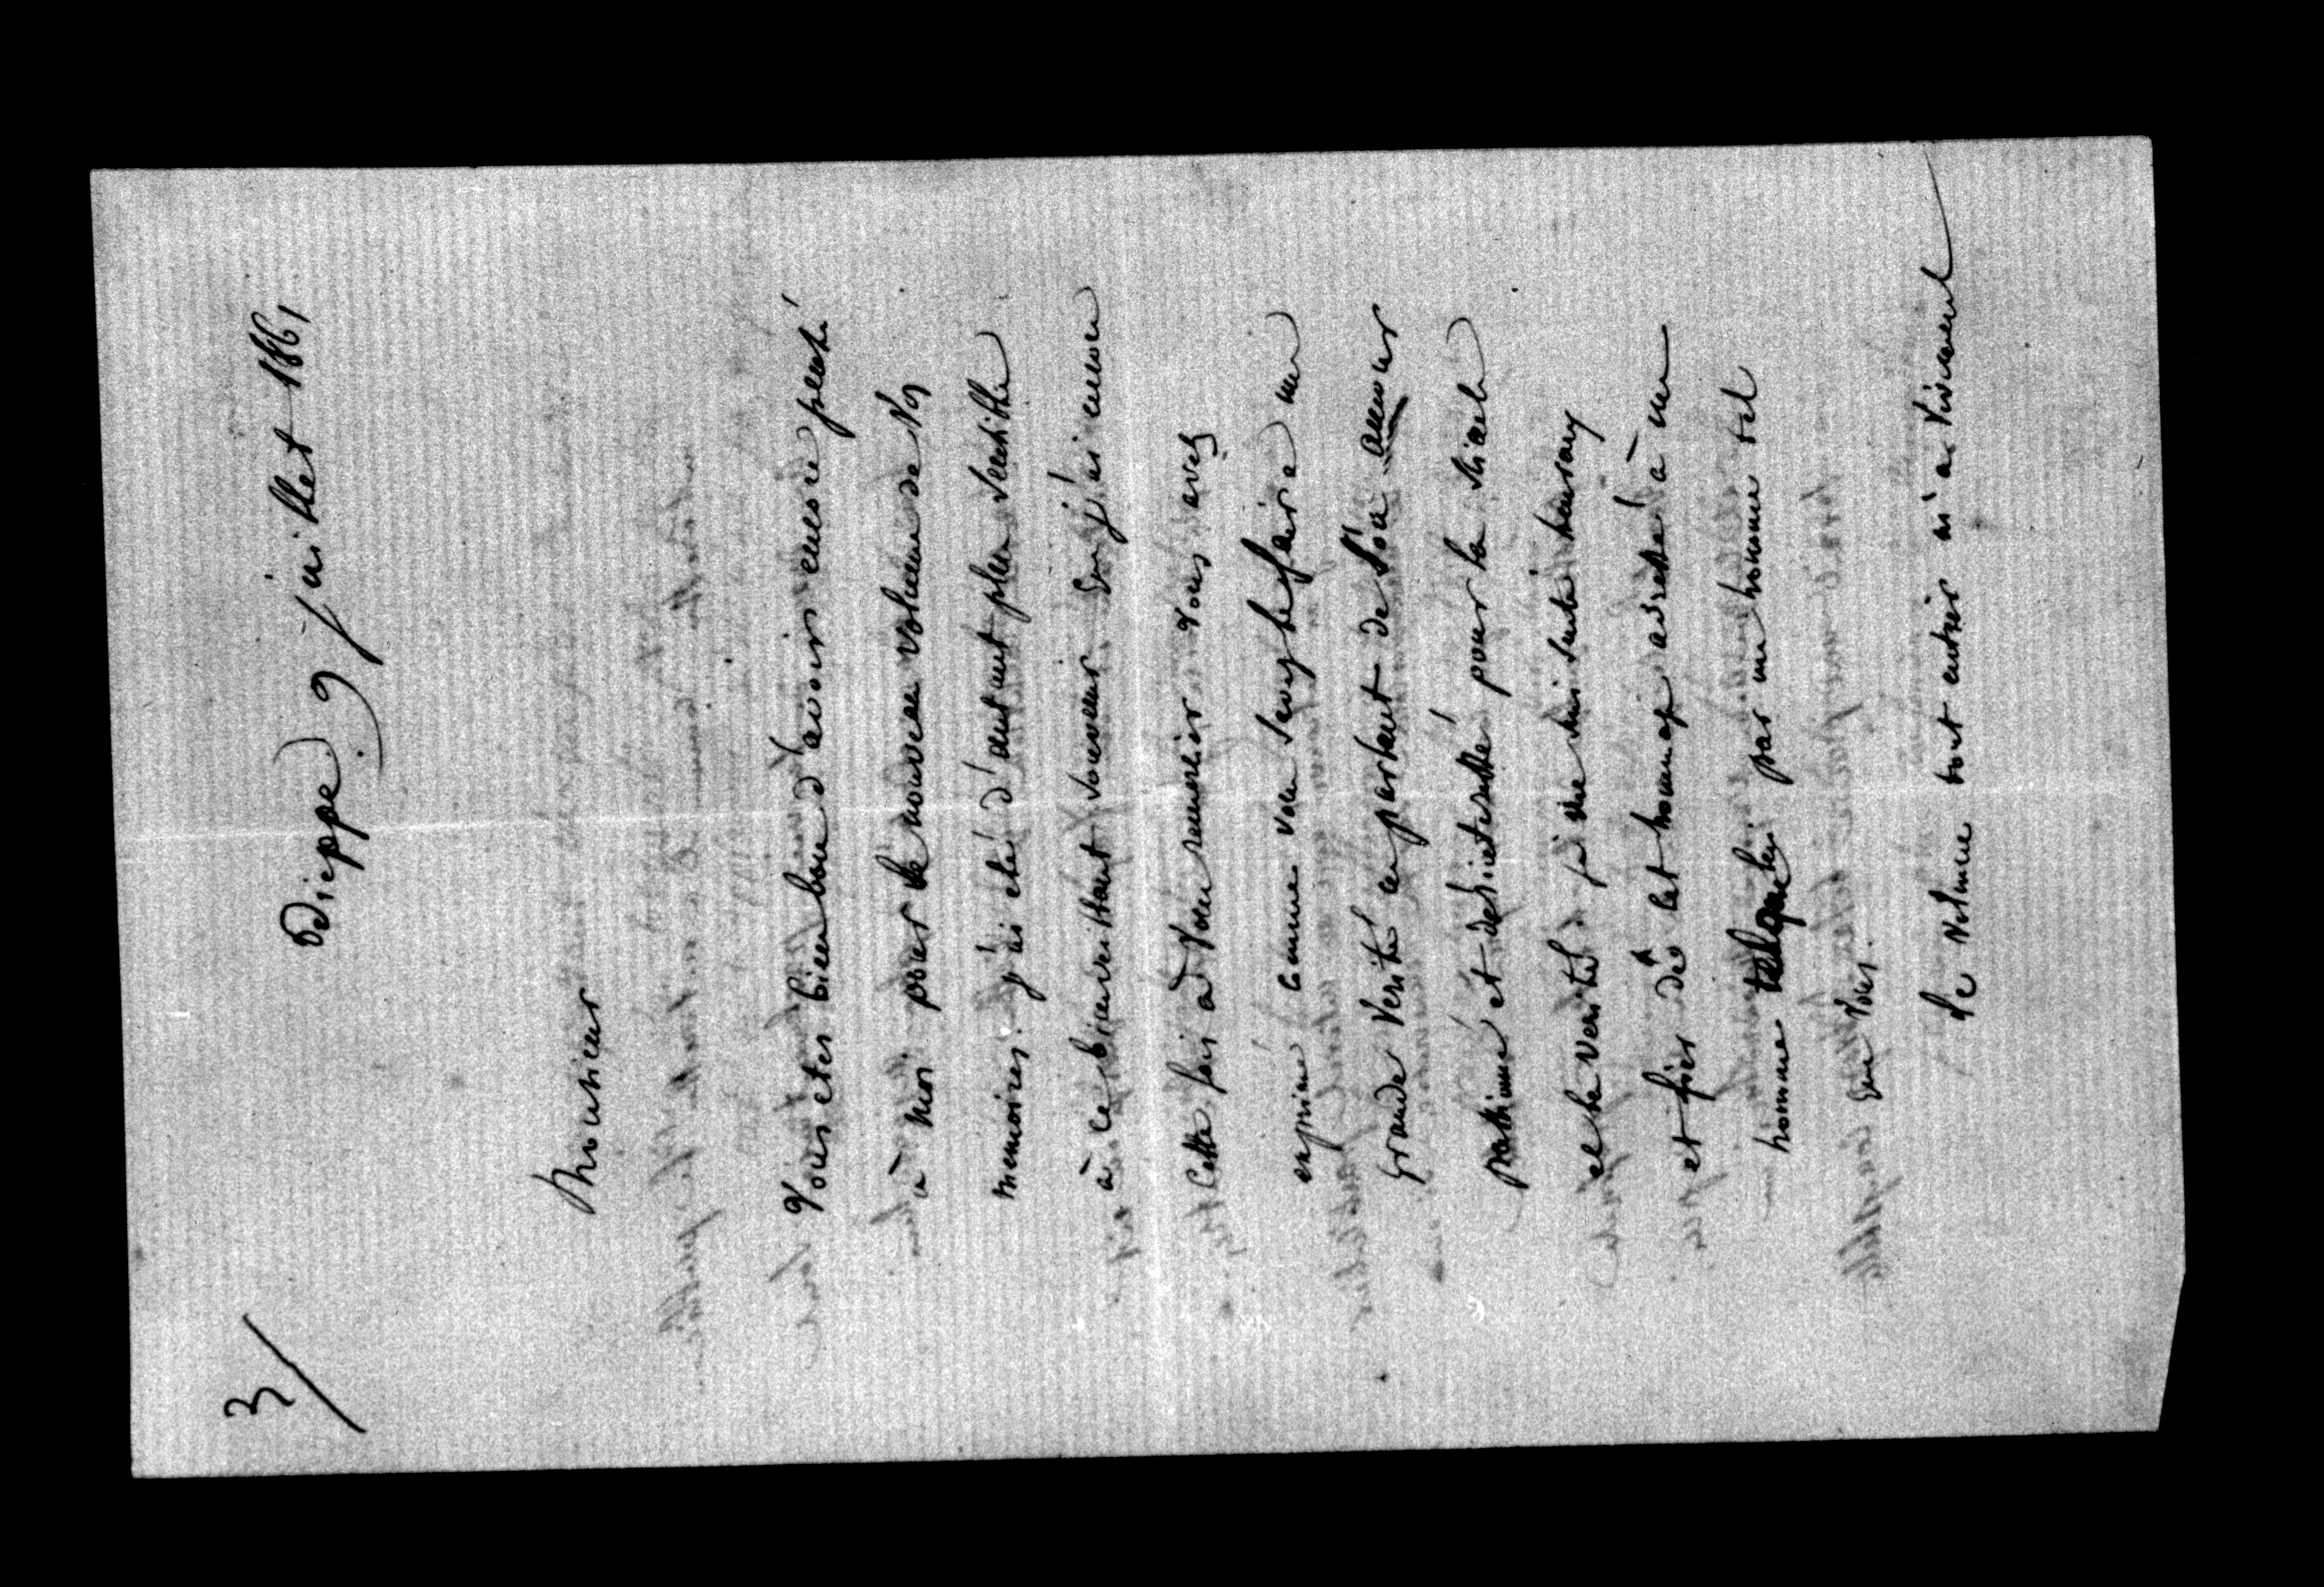 3/
Dieppe. 9 juillet 1861
Monsieur
Vous etes bien bon d'avoir encore pensé
à moi pour le nouveau volume de Vos
memoires. j'ai été d'autant plus sensible
à ce bienveillant souvenir que j'ai encore
cette fois à vous remercier. Vous avez
exprimé comme vous savez le faire une
grande verité en parlant de son amour
passionné et desinteressé pour la science
et la verité. je me suis senti heureux
et fier de cet hommage adressé à un
homme tel que lui par un homme tel
que vous.
Ce volume tout entier m'a vivement